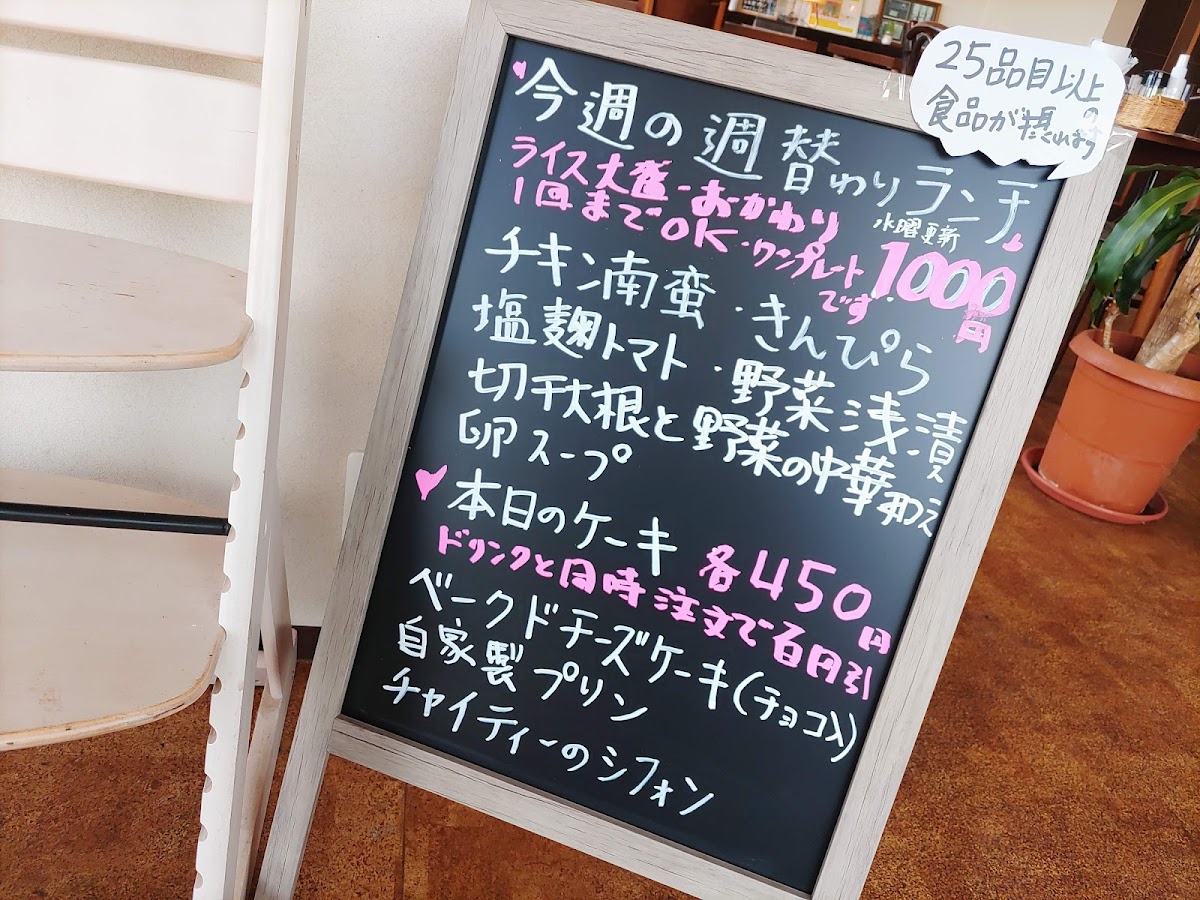 25品目以上の
食品が摂れます
今週の週替わりランチ
水曜更新
ライス大盛・おかわり
1回までOK・ワンプレート
です
1000円
チキン南蛮・きんぴら
塩麹トマト・野菜浅漬
切干大根と野菜の中華和え
卵スープ
本日のケーキ 各450円
ドリンクと同時注文で百円引
ベークドチーズケーキ(チョコ入)
自家製プリン
チャイティーのシフォン